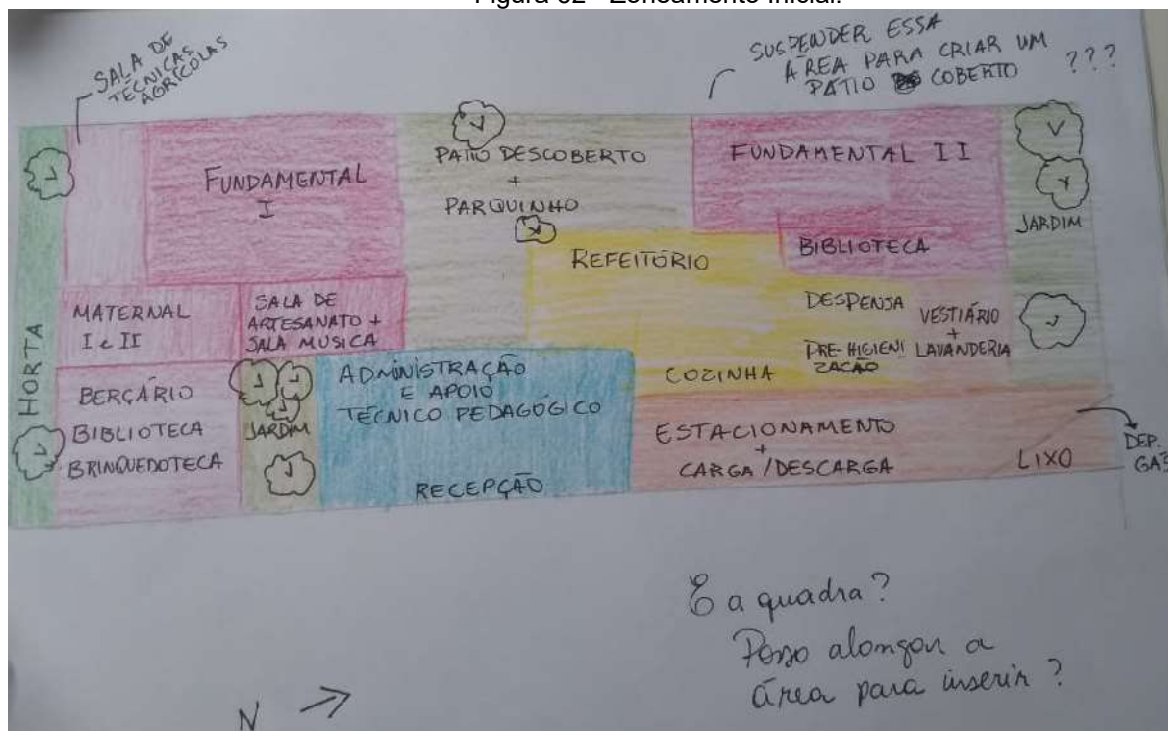 Figura 02 - Zoneamento Inicial.
SALA DE
TÉCNICAS
AGRÍCOLAS
SUSPENDER ESSA
ÁREA PARA CRIAR UM
PÁTIO COBERTO ???
FUNDAMENTAL
I
PATIO DESCOBERTO
+
PARQUINHO
FUNDAMENTAL II
JARDIM
BIBLIOTECA
REFEITÓRIO
HORTA
MATERNAL
I e II
SALA DE
ARTESANATO +
SALA MUSICA
DESPENSA
PRE-HIGIENI
ZACÃO
VESTIÁRIO
+
LAVANDERIA
COZINHA
BERÇÁRIO
BIBLIOTECA
BRINQUEDOTECA
JARDIM
ADMINISTRAÇÃO
E APOIO
TÉCNICO PEDAGÓGICO
RECEPÇÃO
ESTACIONAMENTO
+
CARGA/DESCARGA
LIXO
DEP.
GAS
E a quadra?
Posso alongar a
área para inserir?
N